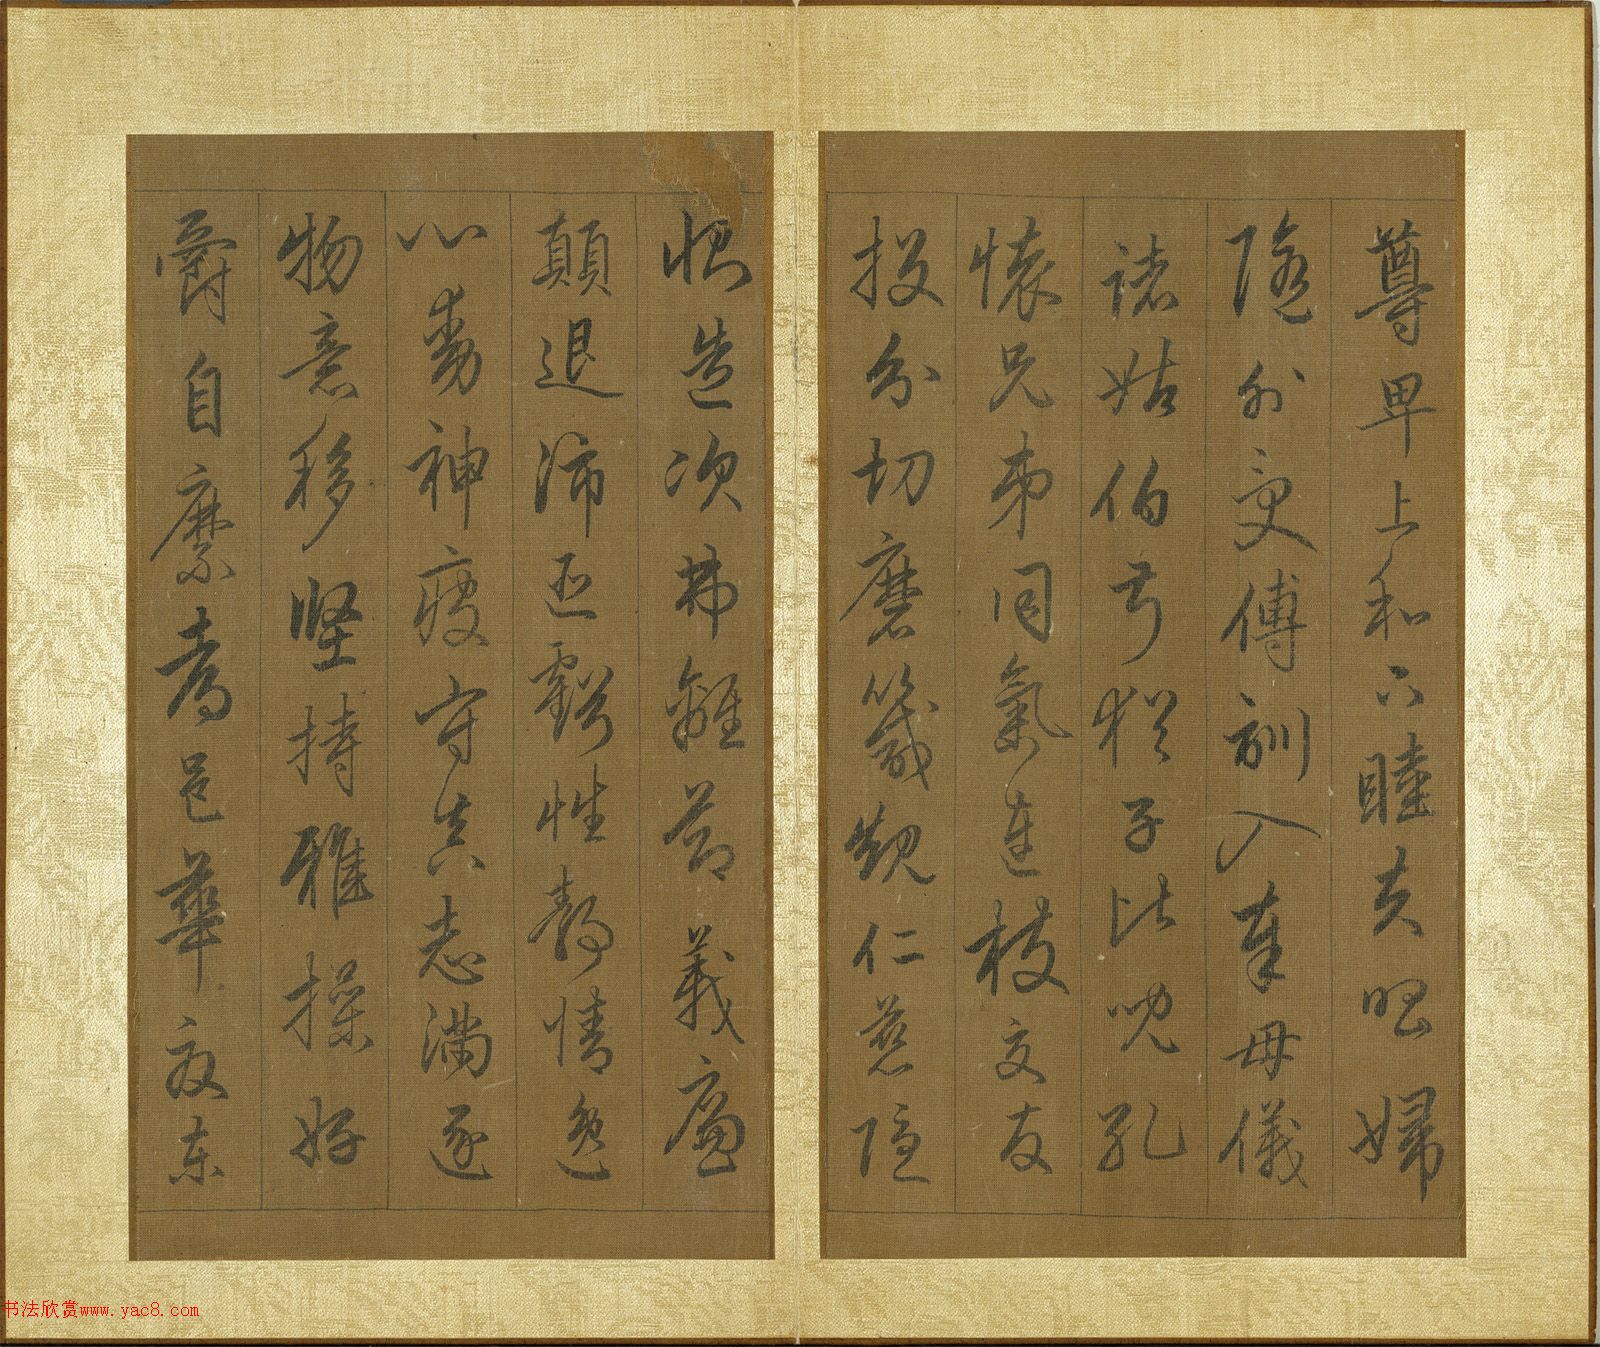 尊卑上和下睦夫唱婦
隨外受傅訓入奉母儀
諸姑伯叔猶子比兒孔
懷兄弟同氣連枝交友
投分切磨箴規仁慈隱
惻造次弗離節義廉
顛退沛匪虧性靜情逸
心動神疲守真志滿逐
物意移堅持雅操好
爵自縻都邑華夏東
书法欣赏www.yac8.com